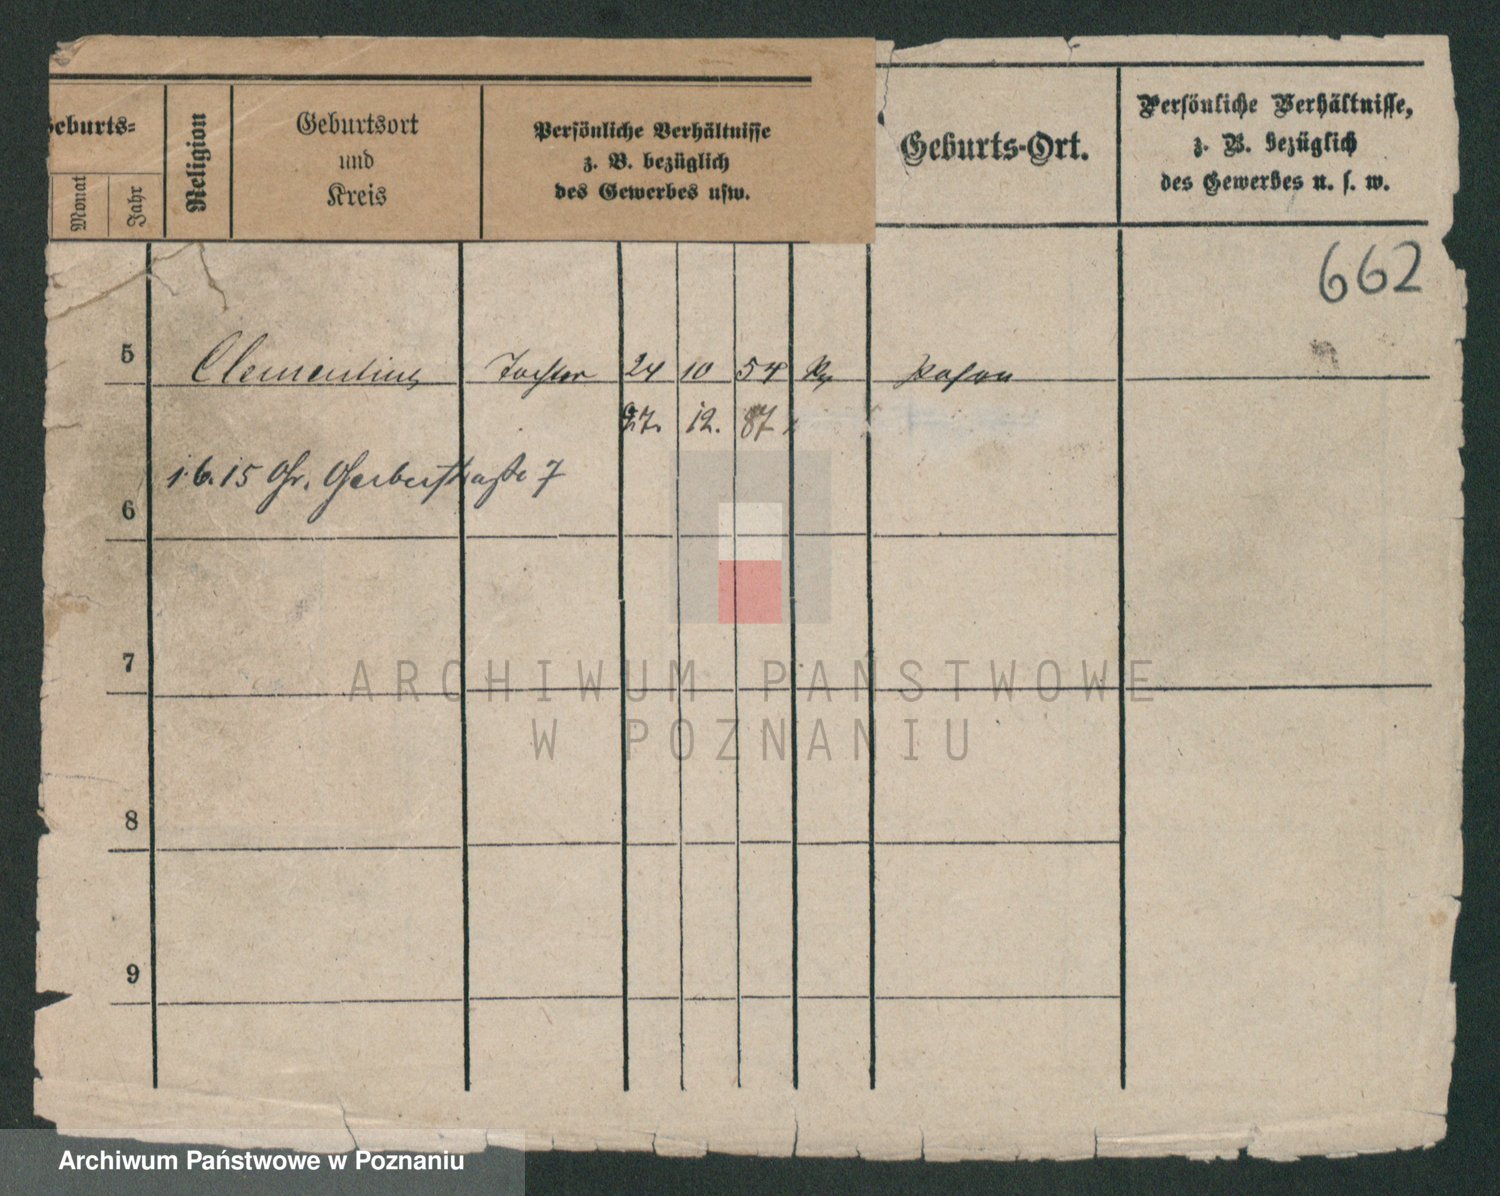 Geburts-
Monat
Jahr
Religion
Geburtsort
und
Kreis
Persönliche Verhältnisse
z. B. bezüglich
des Gewerbes usw.
Geburts-Ort.
Persönliche Verhältnisse,
z. B. bezüglich
des Gewerbes u. s. w.
662
5 Clementine Tochter 24 10 54 Posen
27. 12. 87
1.6.15 Gr. Gerberstraße 7
6
7
8
9
ARCHIWUM PAŃSTWOWE
W POZNANIU
Archiwum Państwowe w Poznaniu